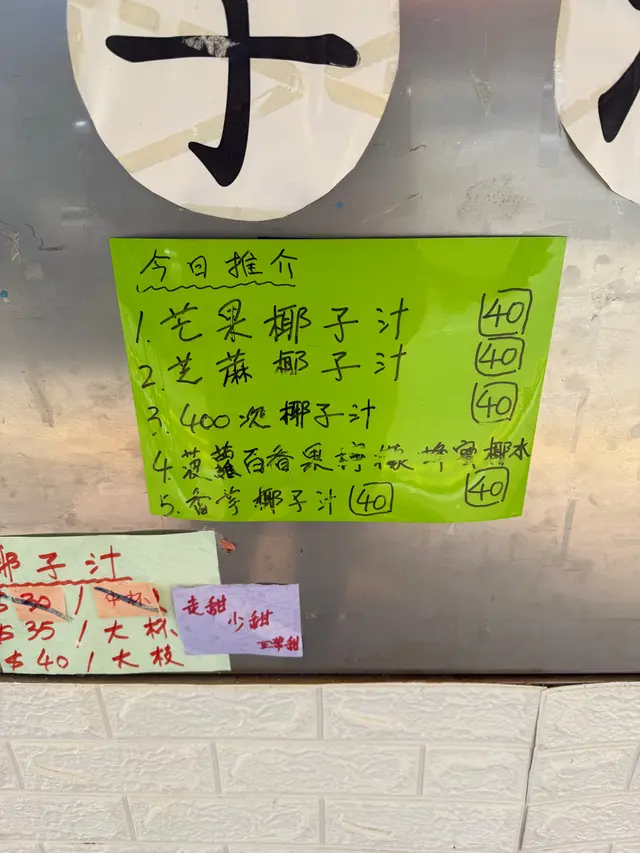 子
今日推介
1. 芒果椰子汁 40
2. 芝蔴椰子汁 40
3. 400次椰子汁 40
4. 菠蘿百香果檸檬蜂蜜椰水 40
5. 香芋椰子汁 40
椰子汁
$30 / 中杯
$35 / 大杯
$40 / 大枝
走甜
少甜
正常甜